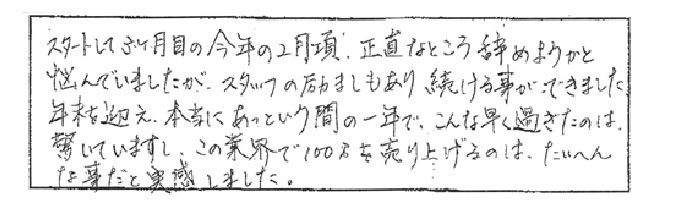 スタートして3ヶ月目の今年の2月頃、正直なところ辞めようかと
悩んでいましたが、スタッフの励ましもあり続ける事ができました
年末を迎え、本当にあっという間の一年で、こんな早く過ぎたのは、
驚いていますし、この業界で100万を売り上げるのは、たいへん
な事だと実感しました。